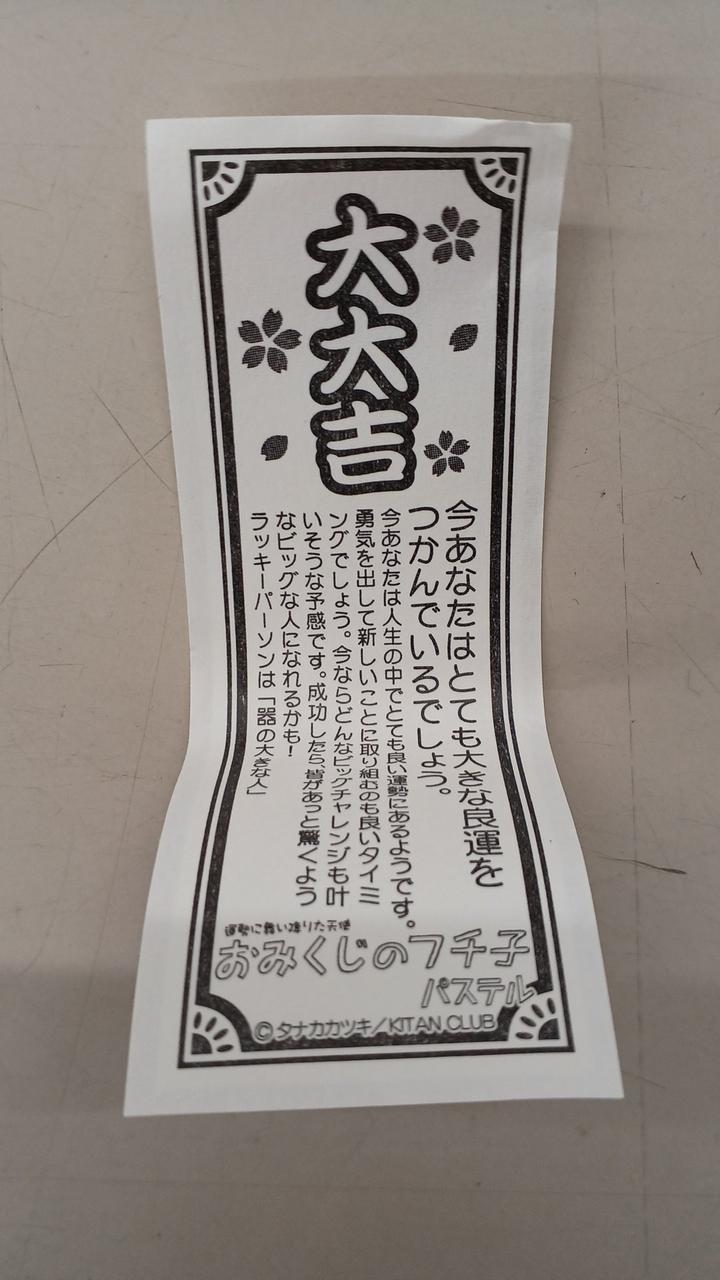 大大吉
今あなたはとても大きな良運を
つかんでいるでしょう。
今あなたは人生の中でとても良い運勢にあるようです。
勇気を出して新しいことに取り組むのも良いタイミ
ングでしょう。今ならどんなビッグチャレンジも叶
いそうな予感です。成功したら、皆があっと驚くよう
なビッグな人になれるかも！
ラッキーパーソンは「器の大きな人」
運勢に舞い降りた天使
おみくじのフチ子
パステル
©タナカカツキ/KITAN CLUB